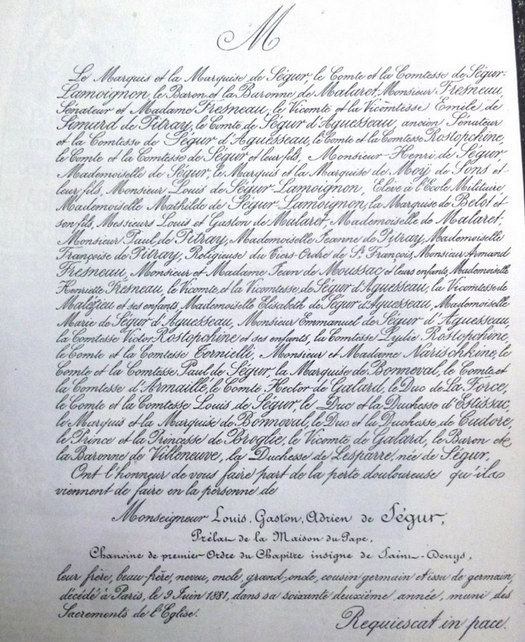 M
Le Marquis et la Marquise de Ségur, le Comte et la Comtesse de Ségur-
Lamoignon, le Baron et la Baronne de Malaret, Monsieur Fresneau,
Sénateur et Madame Fresneau, le Vicomte et la Vicomtesse Emile de
Simard de Pitray, le Comte de Ségur d'Aguesseau, ancien Sénateur
et la Comtesse de Ségur d'Aguesseau, le Comte et la Comtesse Rostopchine,
le Comte et la Comtesse de Ségur et leur fils, Monsieur Henri de Ségur,
Mademoiselle de Ségur, le Marquis et la Marquise de Moÿ de Sons et
leur fils, Monsieur Louis de Ségur-Lamoignon, Elève à l'Ecole Militaire,
Mademoiselle Mathilde de Ségur Lamoignon, la Marquise de Belot et
son fils, Messieurs Louis et Gaston de Malaret, Mademoiselle de Malaret,
Monsieur Paul de Pitray, Mademoiselle Jeanne de Pitray, Mademoiselle
Françoise de Pitray, Religieuse du Tiers-Ordre de St François, Monsieur Armand
Fresneau, Monsieur et Madame Jean de Moussac et leurs enfants, Mademoiselle
Henriette Fresneau, le Vicomte et la Vicomtesse de Ségur d'Aguesseau, la Vicomtesse de
Malézieu et ses enfants, Mademoiselle Elisabeth de Ségur d'Aguesseau, Mademoiselle
Marie de Ségur d'Aguesseau, Monsieur Emmanuel de Ségur d'Aguesseau
la Comtesse Victor Rostopchine et ses enfants, la Comtesse Lydie Rostopchine,
le Comte et la Comtesse Tornielli, Monsieur et Madame Narischkine, le
Comte et la Comtesse Paul de Ségur, la Marquise de Bonneval, le Comte et
la Comtesse d'Armaillé, le Comte Hector de Galard, le Duc de La Force,
le Comte et la Comtesse Louis de Ségur, le Duc et la Duchesse d'Estissac,
le Marquis et la Marquise de Bonneval, le Duc et la Duchesse de Cadore,
le Prince et la Princesse de Broglie, le Vicomte de Galard, le Baron et
la Baronne de Villeneuve, la Duchesse de Lesparre, née de Ségur,
Ont l'honneur de vous faire part de la perte douloureuse qu'ils
viennent de faire en la personne de
Monseigneur Louis, Gaston, Adrien de Ségur,
Prélat de la Maison du Pape,
Chanoine de premier Ordre du Chapitre insigne de Saint-Denys,
leur frère, beau-frère, neveu, oncle, grand-oncle, cousin germain et issu de germain,
décédé à Paris, le 9 Juin 1881, dans sa soixante deuxième année, muni des
Sacrements de l'Eglise.
Requiescat in pace.